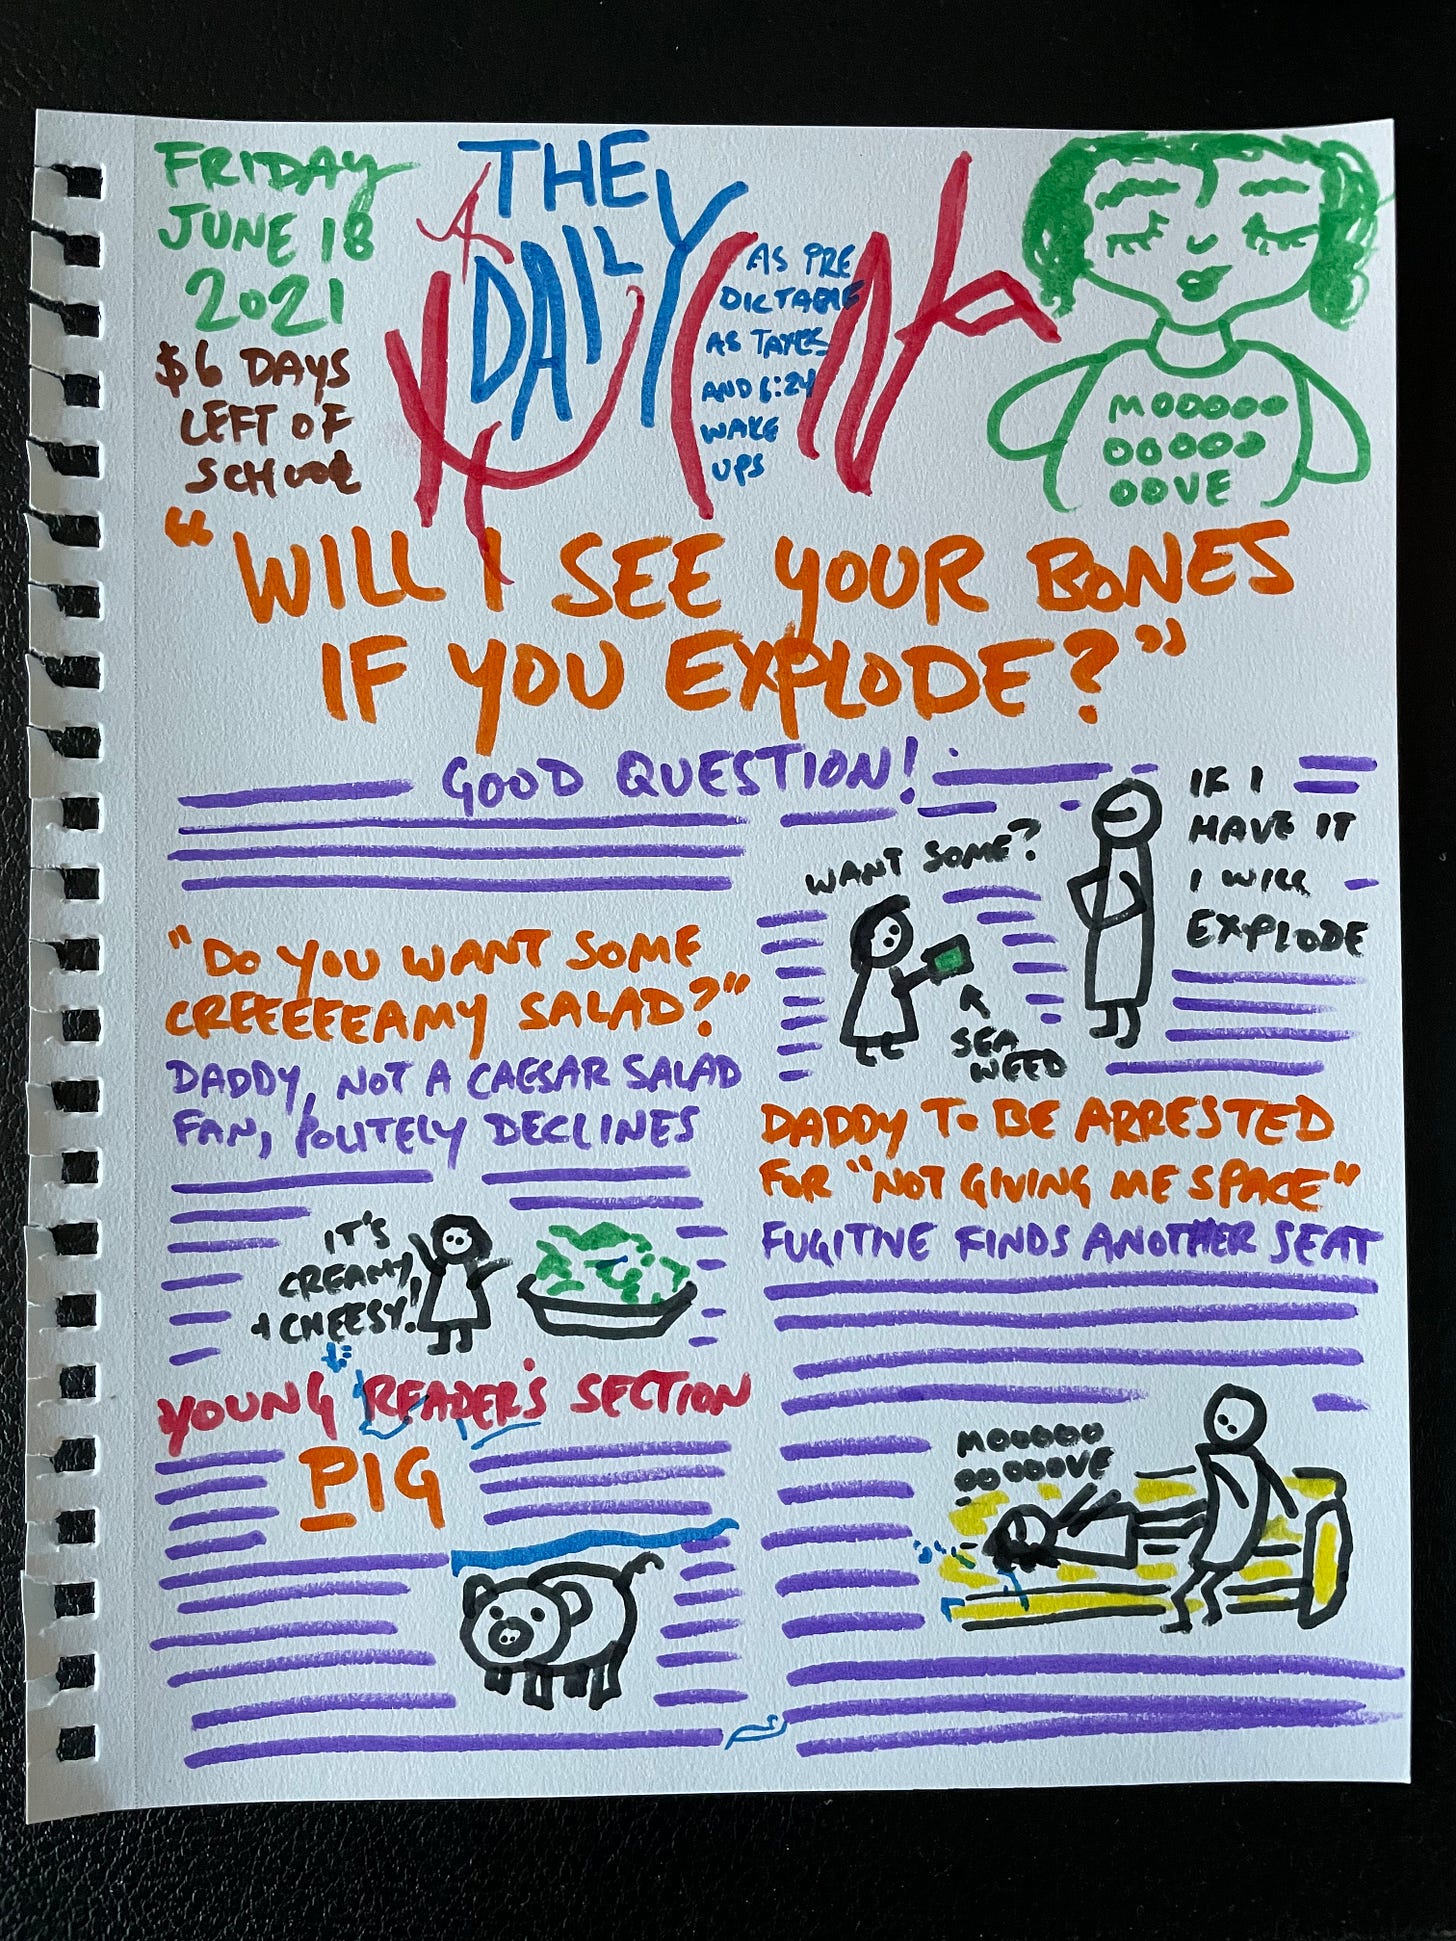 FRIDAY
JUNE 18
2021
$6 DAYS
LEFT OF
SCHOOL
THE
DAILY
AS PRE
DICTABLE
AS TAXES
AND 6:24
WAKE
UPS
MOOOOO
OOOOO
OOVE
"WILL I SEE YOUR BONES
IF YOU EXPLODE?"
GOOD QUESTION!
WANT SOME?
IF I
HAVE IT
I WILL
EXPLODE
SEA
WEED
"DO YOU WANT SOME
CREEEEEEAMY SALAD?"
DADDY, NOT A CAESAR SALAD
FAN, POLITELY DECLINES
IT'S
CREAMY,
+ CHEESY!
DADDY TO BE ARRESTED
FOR "NOT GIVING ME SPACE"
FUGITIVE FINDS ANOTHER SEAT
MOOOOO
OOOOOVE
YOUNG READER'S SECTION
PIG